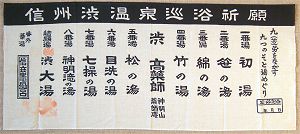 信州渋温泉巡浴祈願
九(苦)労をながす
九つのそと湯めぐり
一番湯 初湯
二番湯 笹の湯
三番湯 綿の湯
四番湯 竹の湯
渋 高薬師
五番湯 松の湯
六番湯 目洗の湯
七番湯 七操の湯
八番湯 神明滝の湯
結願湯 渋大湯
年 月 日